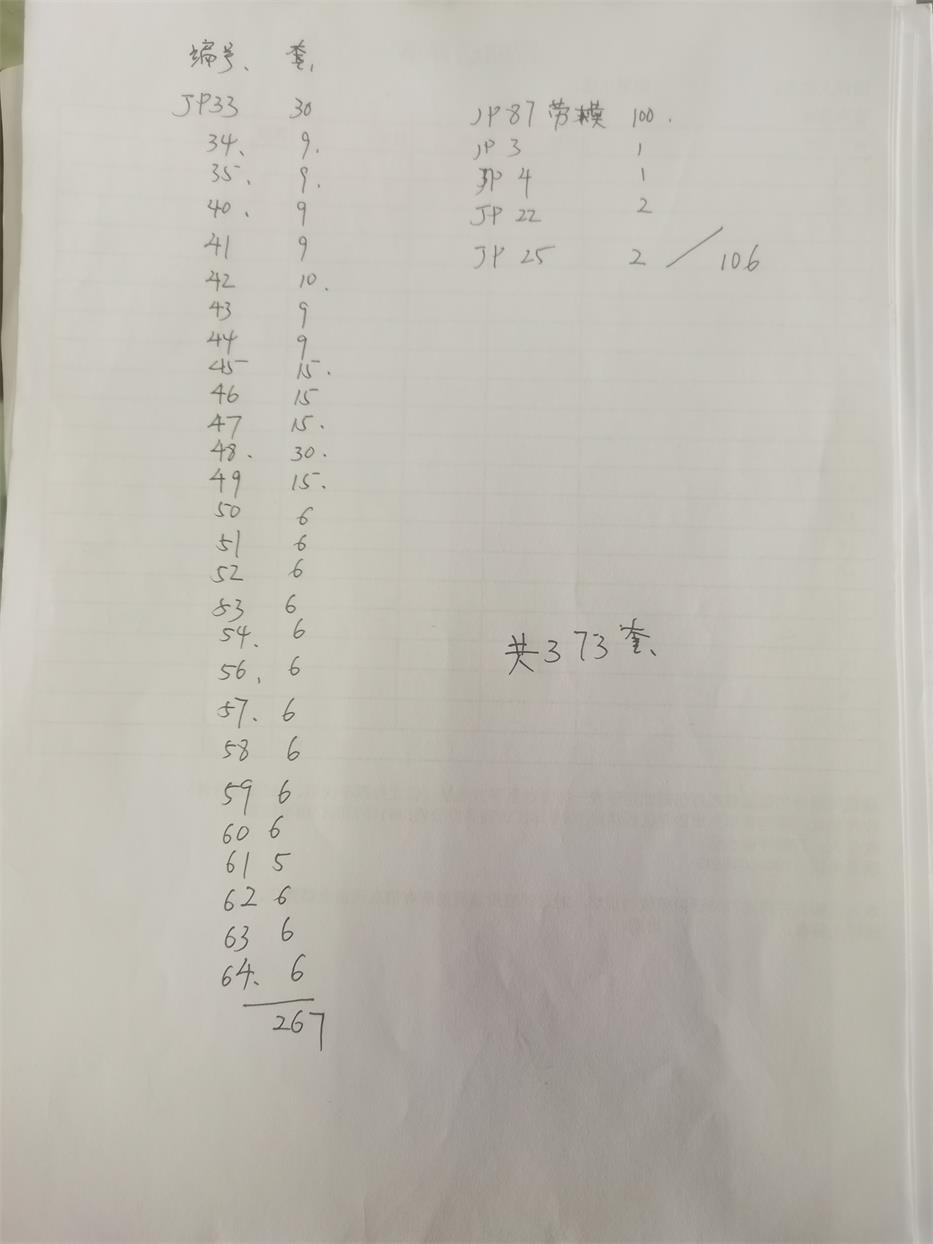 编号、 套、
JP33 30
34、 9.
35. 9.
40. 9
41 9
42 10.
43 9
44 9
45 15.
46 15
47 15.
48. 30.
49 15.
50 6
51 6
52 6
53 6
54. 6
56. 6
57. 6
58 6
59 6
60 6
61 5
62 6
63 6
64、 6
267
JP87 劳模 100.
JP 3 1
JP 4 1
JP 22 2
JP 25 2 / 106
共373套、